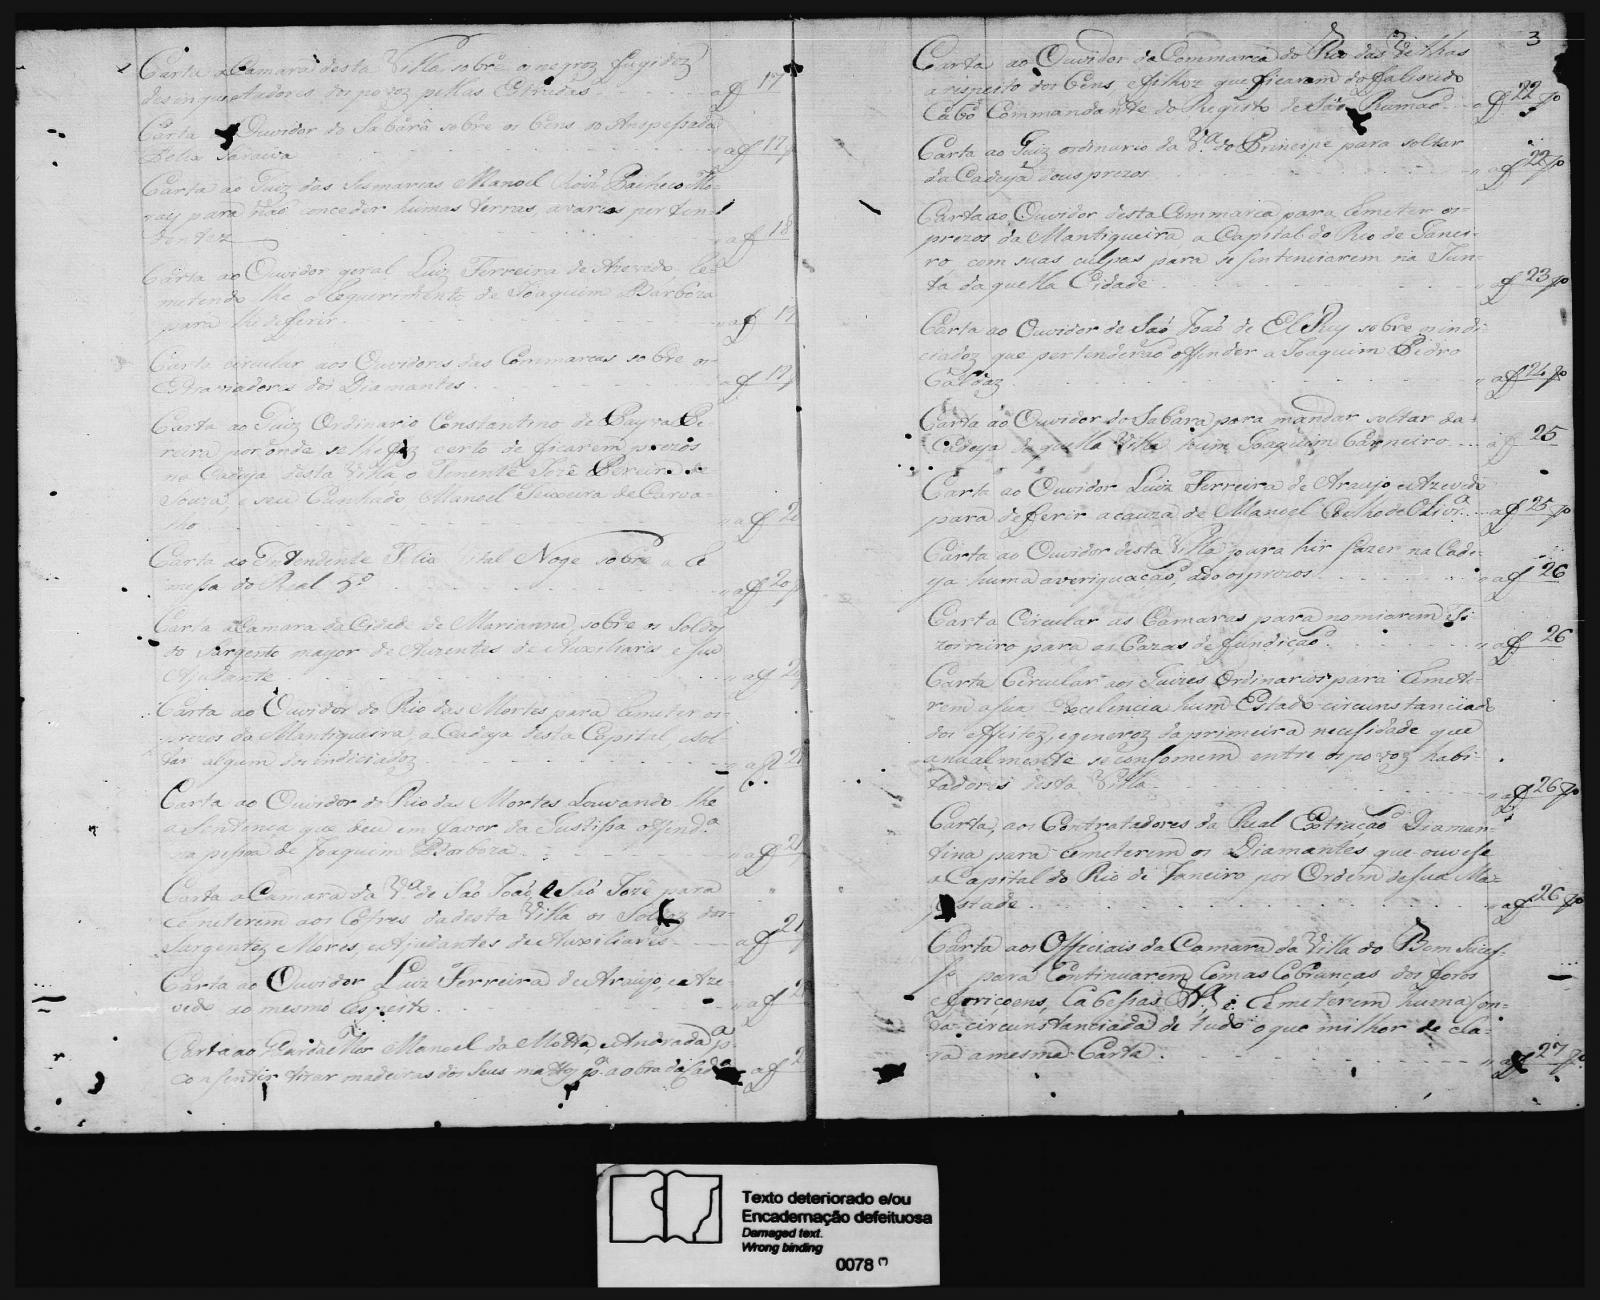 Carta a Camara desta Villa, sobre o negroz fugidoz
desinquietadores dos povoz pellas Estradas - - - a f 17
Carta Ouvidor do Sabará sobre os bens do Anspessada
Felix Saraiva - - - a f 17
Carta ao Juiz das Sismarias Manoel Pacheco Mo-
para não conceder humas terras, a varios perten-
dentez - - - a f 18
Carta ao Ouvidor geral Luiz Ferreira de Azevedo, Re-
metendo lhe o Requerimento de Joaquim Barboza
para lhe deferir - - - a f 19
Carta circular aos Ouvidores das Commarcas sobre os
Estraviadores dos Diamantes - - - a f 19
Carta ao Juiz Ordinario Constantino de Payva Pe
reira por onde se lhe faz certo de ficarem prezos
na Cadeya desta Villa o Tenente José Pereira de
Souza, e seu Cunhado Manoel Teixeira de Carva-
lho - - - a f 20
Carta ao Intendente sobre a Re
messa do Real 5.º - - - a f 20
Carta a Camara da Cidade de Marianna, sobre os Soldos
do Sargento mayor de Auzentes de Auxiliares e seu
Ajudante - - - a f
Carta ao Ouvidor do Rio das Mortes para Remeter os
prezos da Mantiqueira, a Cadeya desta Capital e sol
tar algum dos indiciadoz - - - a f 21
Carta ao Ouvidor do Rio das Mortes Louvando-lhe
a Sentença que deu em favor da Justissa offend.ª
na pessoa de Joaquim Barboza - - - a f 21
Carta a Camara da V.ª de São João, e São Jozé para
remeterem aos Cofres da desta Villa os Soldoz dos
Sargentoz Mores, e Ajudantes de Auxiliares - - - a f 21
Carta ao Ouvidor Luiz Ferreira de Araujo, e Aze-
vedo ao mesmo Respeito - - - a f
Carta ao Guarda Mor Manoel da Motta, e Andrada, p.ª
consentir tirar madeiras dos seus mattos p.ª a obra da - - - a f
3
Carta ao Ouvidor da Commarca do Rio das Velhas
a respeito dos bens, e filhoz que ficaram do falescido
Cabo Commandante do Registo de São Rumão - - a f 22 vo
Carta ao Juiz ordinario da V.ª do Principe para soltar
da Cadeya dous prezos - - - a f 22 vo
Carta ao Ouvidor desta Commarca para Remeter os
prezos da Mantiqueira, a Capital do Rio de Janei-
ro com suas culpas para se sentenciarem na Jun-
ta daquella Cidade - - - a f 23 vo
Carta ao Ouvidor de São João de El Rey sobre os indi
ciadoz que pertenderão offender a Joaquim Pedro
Caldaz - - - a f 24 vo
Carta ao Ouvidor do Sabara para mandar soltar da
Cadeya daquella Villa hum Joaquim Carneiro - - - a f 25
Carta ao Ouvidor Luiz Ferreira de Araujo e Azevedo
para defferir a cauza de Manoel Coelho de Olivr.ª - - a f 25 vo
Carta ao Ouvidor desta Villa para hir fazer na Cade-
ya huma averiguação, a dous prezos - - - a f 26
Carta Circular as Camaras para nomiarem Te-
zoireiro para as Cazas de fundição - - - a f 26
Carta Circular aos Juizes Ordinarios para Remete-
rem a sua Excelencia hum Estado circunstanciado
dos effeitoz, e generoz da primeira necesidade que
anualmente se consomem entre os povoz habi-
tadores desta Villa - - - a f 26 vo
Carta, aos Contratadores da Real Extração Diaman-
tina para Remeterem os Diamantes que ouvese
a Capital do Rio de Janeiro por Ordem de sua Ma-
gestade - - - a f 26 vo
Carta aos Officiais da Camara da Villa do Bom Suces-
so para Continuarem Com as Cobranças dos foros
e Remeterem huma Con-
ta circunstanciada de tudo o que milhor de cla-
ra a mesma Carta - - - a f 27 vo
Texto deteriorado e/ou
Encadernação defeituosa
Damaged text.
Wrong binding
0078